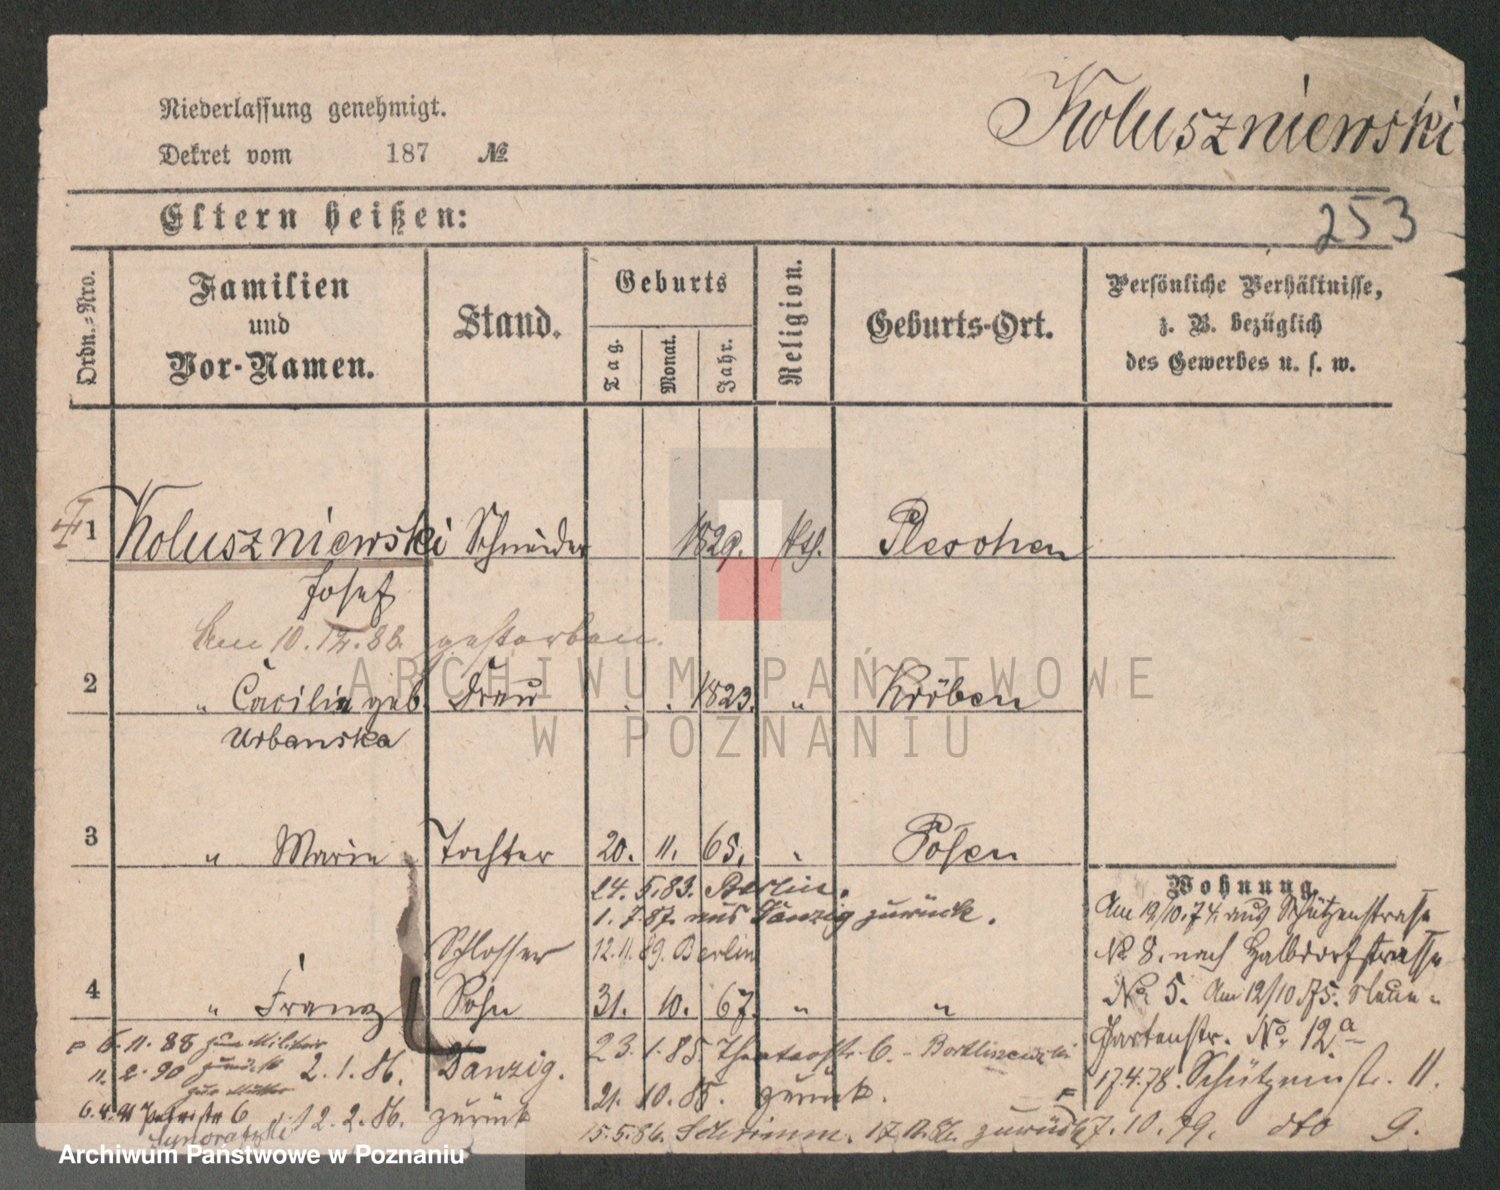 Niederlassung genehmigt.
Dekret vom 187 №
Koluszniewski
Eltern heißen:
253
Ordn.-Nro.
Familien
und
Vor-Namen.
Stand.
Geburts
Tag.
Monat.
Jahr.
Religion.
Geburts-Ort.
Persönliche Verhältnisse,
z. B. bezüglich
des Gewerbes u. s. w.
1 Koluszniewski Schneider 1829. kth. Pleschen
Josef
den 10. 12. 88. gestorben.
2 " Cacilia geb. Frau 1823. " Kröben
Urbanska
3 " Marie Tochter 20. 11. 65. " Posen
24. 5. 83. Berlin.
1. 7. 87. aus Danzig zurück.
Schlosser 12. 11. 89. Berlin
4 " Franz Sohn 31. 10. 67. " "
6. 11. 88 zum Militär
11. 2. 90 zurück 2. 1. 86. Danzig. 23. 1. 85 Theaterstr. 6.
zur Mutter 21. 10. 85. zurück.
6. 4. 91 6 12. 2. 86. zurück
15. 5. 86. Schrimm. 17. 12. 86. zurück
Wohnung.
Am 12/10. 74. aus Schützenstrasse
No 8. nach Halbdorfstrasse
No 5. Am 12/10 75. Neue
Gartenstr. No. 12a
17. 4. 78. Schützenstr. 11.
7. 10. 79. dto 9.
ARCHIWUM PAŃSTWOWE
W POZNANIU
Archiwum Państwowe w Poznaniu